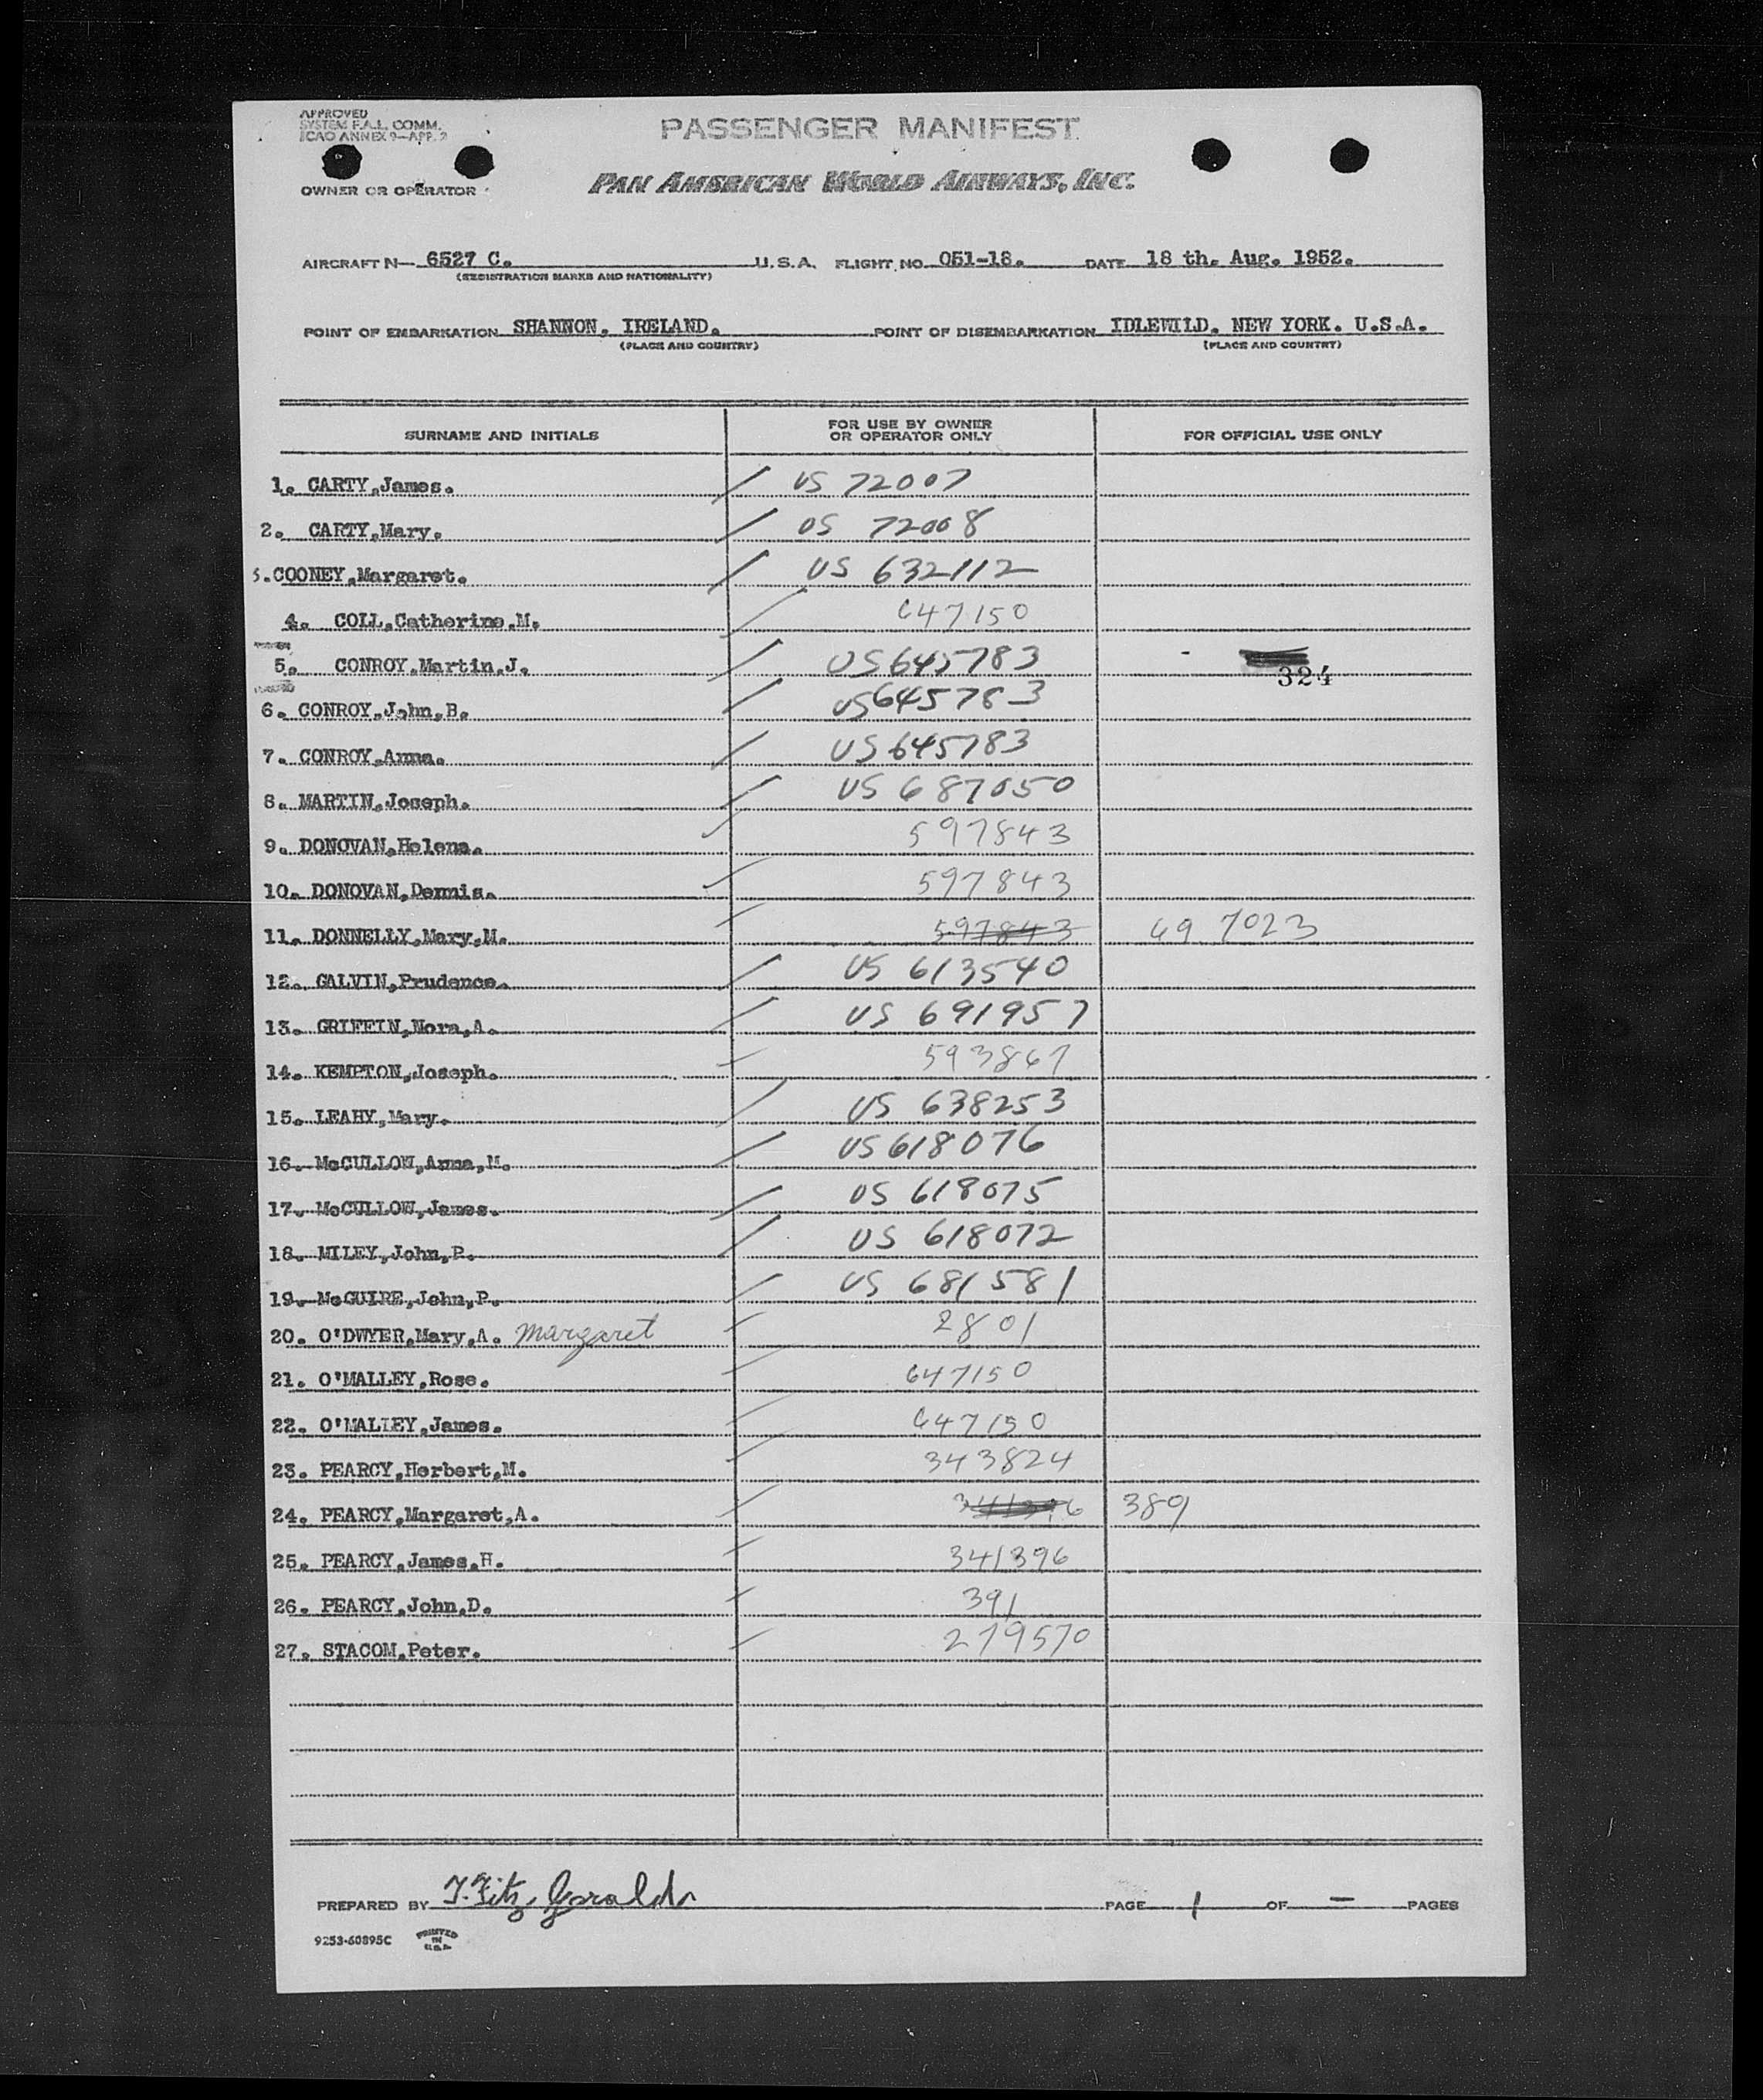 APPROVED
SYSTEM F.A.L. COMM.
ICAO ANNEX 9—APP. 2
PASSENGER MANIFEST
OWNER OR OPERATOR
PAN AMERICAN WORLD AIRWAYS, INC.
AIRCRAFT N— 6527 C. U.S.A. FLIGHT NO. 051-18. DATE 18 th. Aug. 1952.
(REGISTRATION MARKS AND NATIONALITY)
POINT OF EMBARKATION SHANNON. IRELAND. POINT OF DISEMBARKATION IDLEWILD. NEW YORK. U.S.A.
(PLACE AND COUNTRY) (PLACE AND COUNTRY)
SURNAME AND INITIALS FOR USE BY OWNER OR OPERATOR ONLY FOR OFFICIAL USE ONLY
1. CARTY,James. US 72007
2. CARTY,Mary. US 72008
3.COONEY,Margaret. US 632112
4. COLL,Catherine.M. 647150
5. CONROY,Martin.J. US645783 324
6. CONROY,John,B. US645783
7. CONROY,Anna. US645783
8. MARTIN,Joseph. US 687050
9. DONOVAN,Helena. 597843
10. DONOVAN,Dennis. 597843
11. DONNELLY,Mary,M. 597843 697023
12. GALVIN,Prudence. US 613540
13. GRIFFIN,Nora,A. US 691957
14. KEMPTON,Joseph. 593867
15. LEAHY,Mary. US 638253
16. McCULLOW,Anna,M. US618076
17. McCULLOW,James. US 618075
18. MILEY,John,P. US 618072
19. McGUIRE,John,P. US 681581
20. O'DWYER,Mary,A. Margaret 2801
21. O'MALLEY,Rose. 647150
22. O'MALLEY,James. 647150
23. PEARCY,Herbert,M. 343824
24. PEARCY,Margaret,A. 341396 389
25. PEARCY,James,H. 341396
26. PEARCY,John,D. 391
27. STACOM,Peter. 279570
PREPARED BY T. Fitz Gerald PAGE 1 OF — PAGES
9253-60895C PRINTED IN U.S.A.